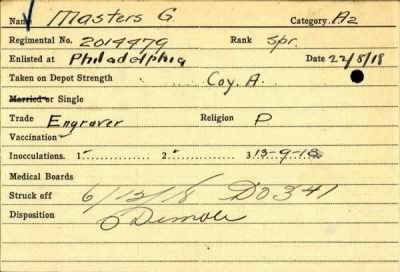 Name Masters G. Category. A2
Regimental No. 2014479 Rank Spr.
Enlisted at Philadelphia Date 22/5/18
Taken on Depot Strength Coy. A.
Married or Single
Trade Engraver Religion P.
Vaccination
Inoculations. 1 2 3 13-9-18.
Medical Boards
Struck off 6/12/18 DO 341
Disposition Demob